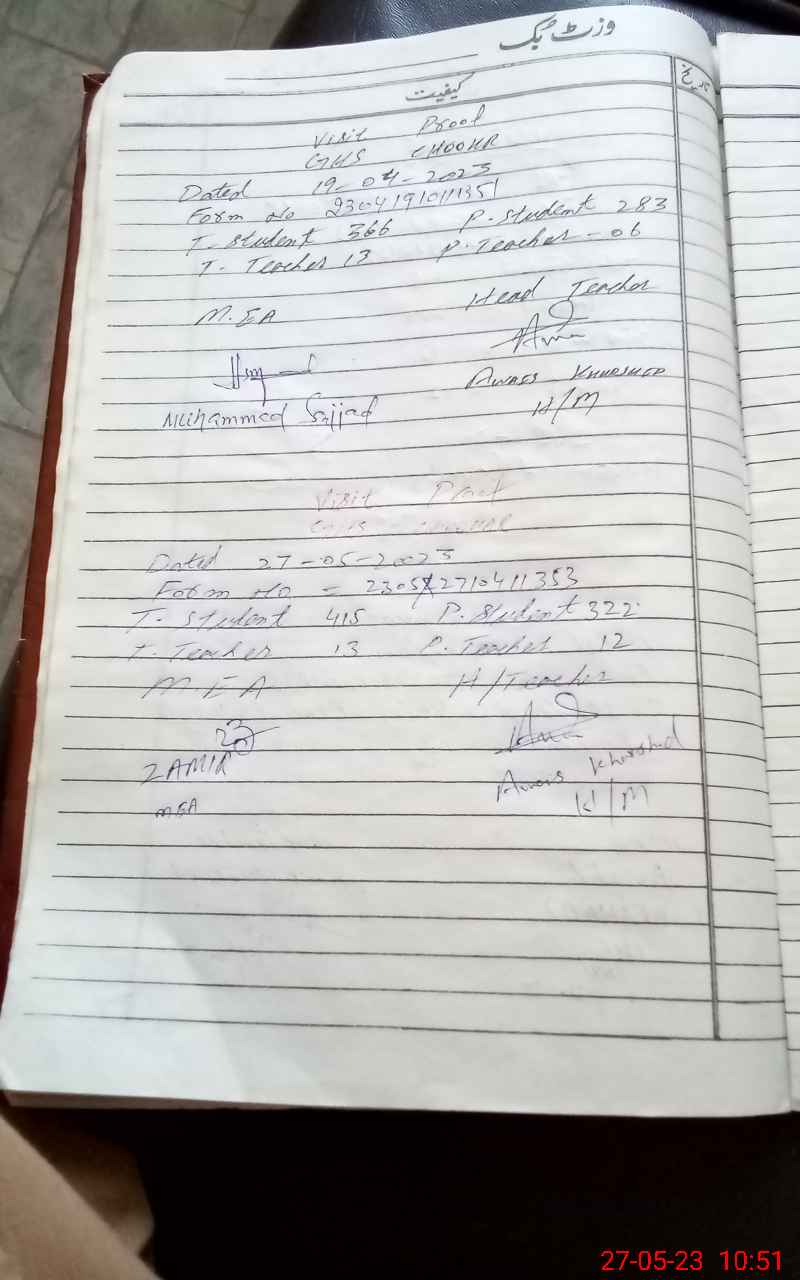 وزٹ بک
کیفیت تاریخ
Visit Proof
GHS CHOOHR
Dated 19-04-2023
Form No 2304191011351
T. Student 366 P. Student 283
T. Teacher 13 P. Teacher - 06
M.EA Head Teacher
Muhammed Sajjad Awaes Khurshed
H/M
Visit Proof
GHS
Dated 27-05-2023
Form No = 2305 2710411353
T. Student 415 P. Student 322
T. Teacher 13 P. Teacher 12
M.EA H/Teacher
ZAMIR Awaes Khurshid
MEA H/M
27-05-23 10:51